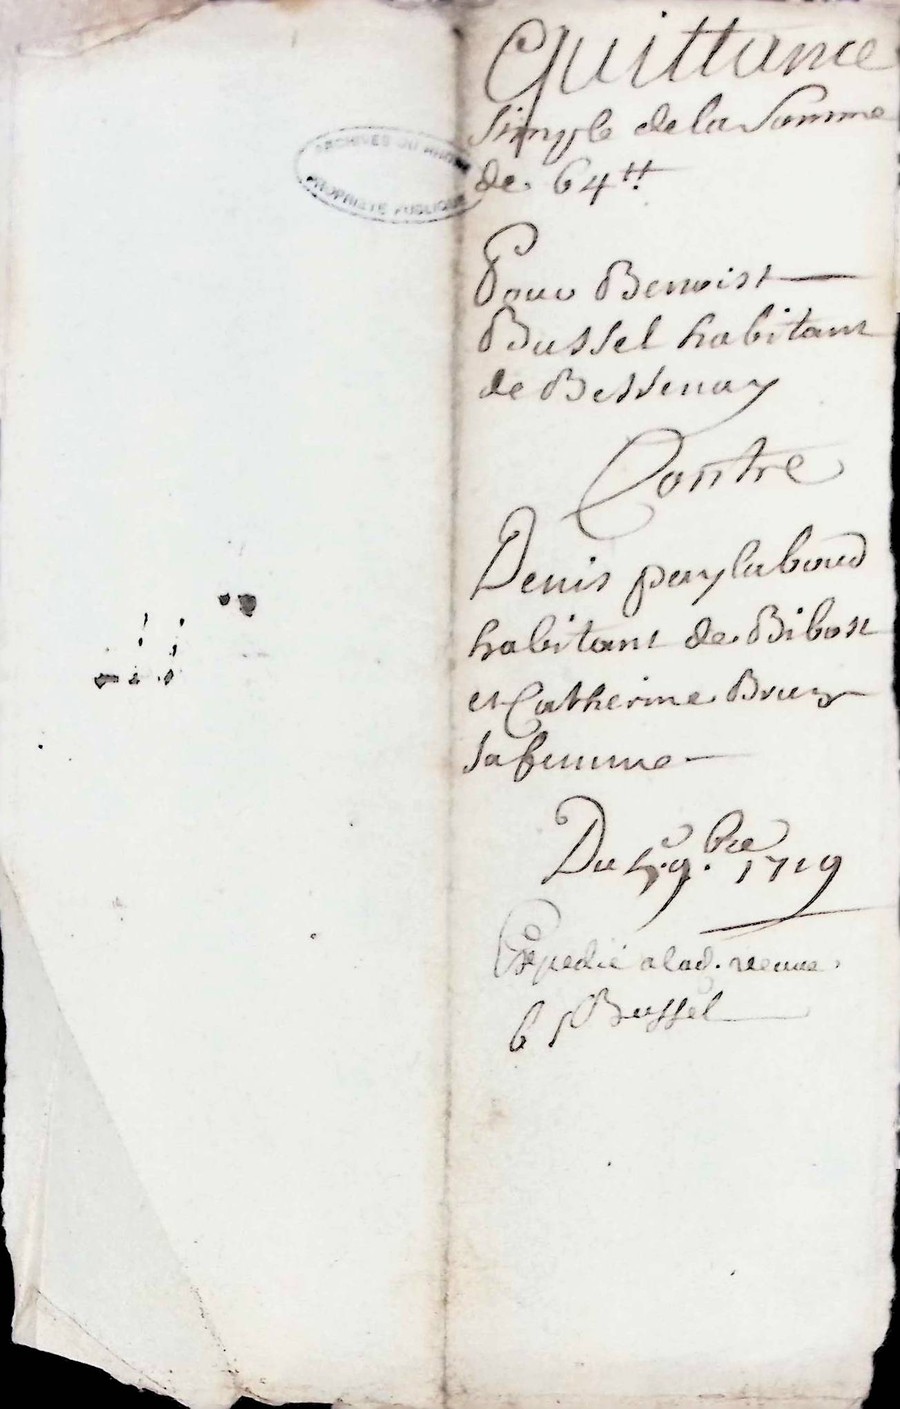 Quittance
simple de la somme
de 64tt.
ARCHIVES DU RHONE
PROPRIÉTÉ PUBLIQUE
Pour Benoist
Bussel habitant
de Bessenay
Contre
Denis
habitant de Bibost
et Catherine
sa femme
Du 9.bre 1719
Expedié a lad. veuve
Bussel